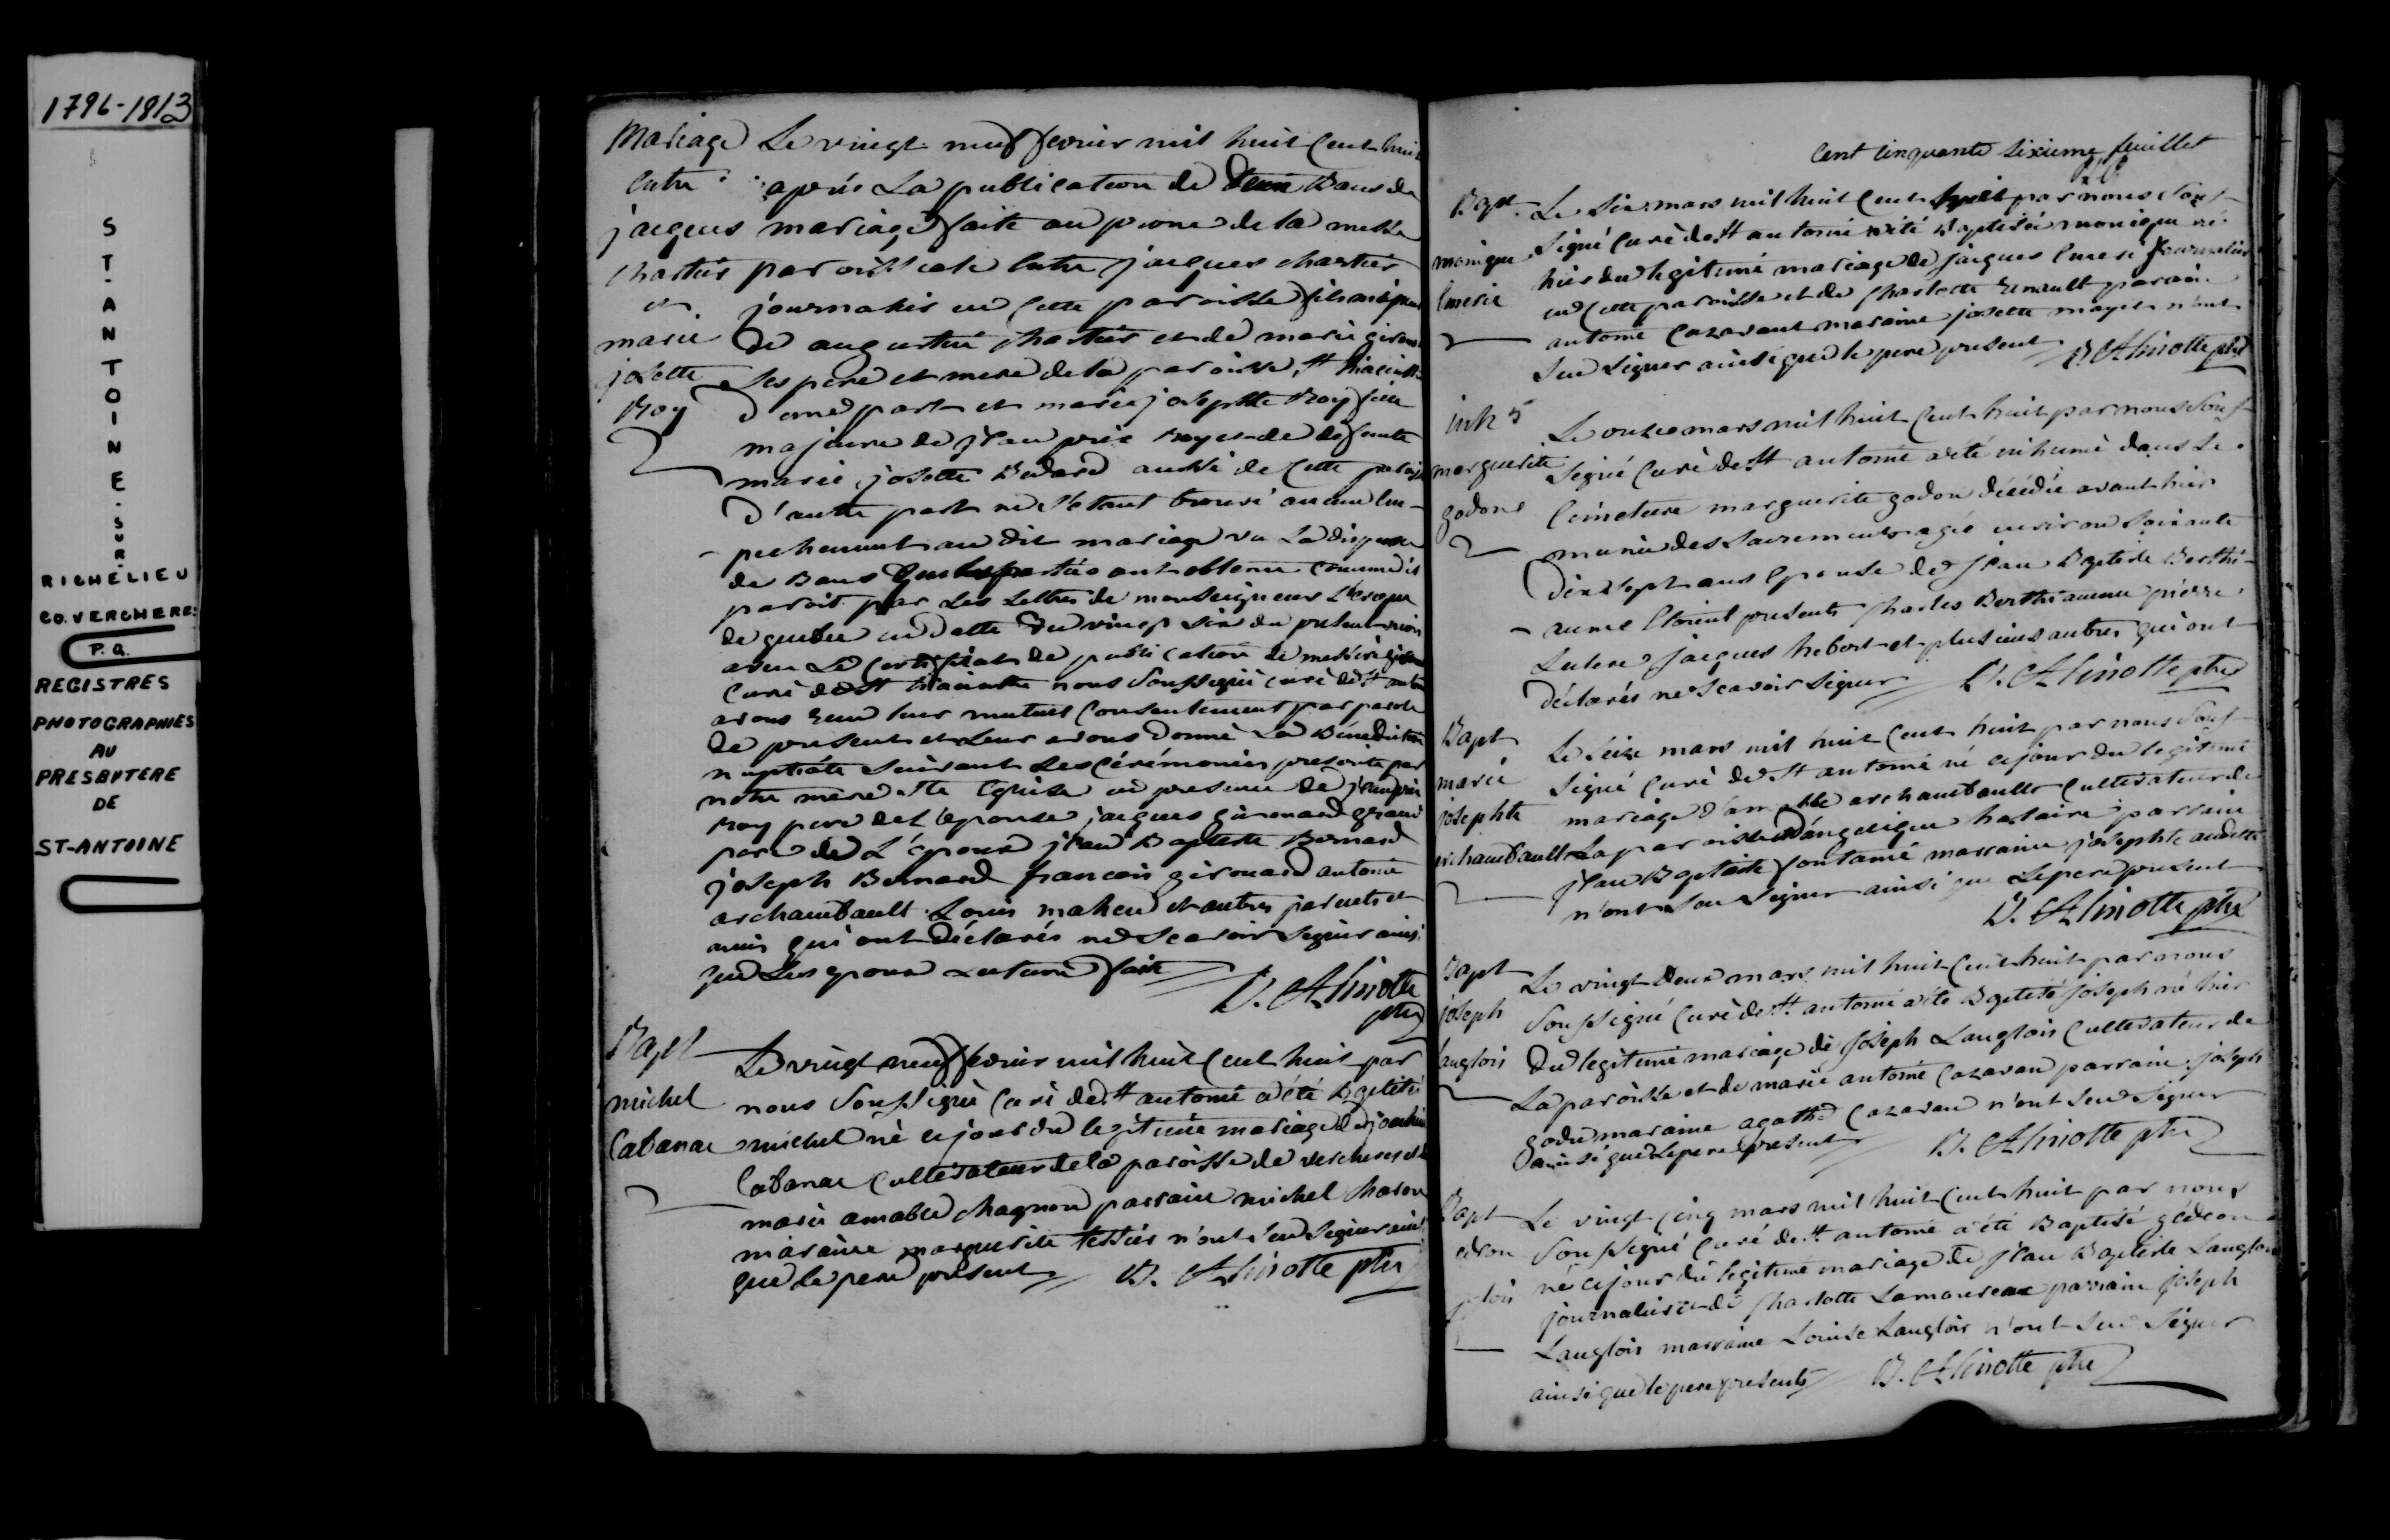 1796-1813
ST-ANTOINE-SUR-
RICHELIEU
CO. VERCHERES
P.Q.
REGISTRES
PHOTOGRAPHIES
AU
PRESBYTERE
DE
ST-ANTOINE
Mariage
entre
jacques
chartier
et
marie
josette
Roy
Le vingt neuf fevrier mil huit Cent huit
après La publication de deux Bans de
mariage faite au prone de la messe
paroissiale Entre jacques chartier
journalier en Cette paroisse fils majeur
de augustin chartier et de marie girouard
ses pere et mere de la paroisse St hiacinthe
d'une part et marie josephte Roy fille
majeure de jean Roy et de defunte
marie josette Bedard aussi de Cette paroisse
d'autre part ne s'etant trouvé aucun Em-
pechement au dit mariage vu La dispense
de Bans que les parties ont obtenu Comme il
paroit par Les Lettres de monseigneur L'Eveque
de quebec en datte du vingt six du présent mois
avec Le Certificat de publication de messire
Curé de St hiacinthe nous Soussigné curé de St antoine
avons reçu leur mutuel Consentement par parole
de present et Leur avons donné La Bénédiction
nuptiale Suivant Les Cérémonies prescrite par
notre mere Ste Eglise en presence de jean
Roy pere de L'épouse jacques girouard grand
pere de L'époux jean Baptiste Bernard
joseph Bernard francois girouard antoine
archambault Louis maheu et autres parents et
amis qui ont déclarés ne Scavoir Signer ainsi
que Les epoux Lecture faite
D. Alinotte
ptre
Bapt
michel
Cabanac
Le vingt neuf fevrier mil huit Cent huit par
nous Soussigné Curé de St antoine a été Baptisé
michel né ce jour du legitime mariage de joachim
Cabanac Cultivateur de la paroisse de vercheres et de
marie amable chagnon parrain michel charon
maraine marguerite tessier n'ont seu Signer ainsi
que Le pere présent D. Alinotte ptre
Cent cinquante Sixieme feuillet
Bapt.
monique
Emerie
Le Six mars mil huit Cent huit par nous Sous-
Signé Curé de St antoine a été Baptisée monique né
hier du legitime mariage de jacques Emerie journalier
en Cette paroisse et de Charlotte renault parain
antoine Cazavant maraine josette mayet n'ont
seu Signer ainsi que le pere present D. Alinotte ptre
inh
marguerite
godon
Le onze mars mil huit Cent huit par nous Sous-
Signé Curé de St antoine a été inhumé dans Le
Cimetiere marguerite godon décédée avant hier
munie des Sacremens agée environ Soixante
dix Sept ans Epouse de jean Baptiste Berthi-
aume Etoient presents Charles Berthiaume pierre
jacques hebert et plusieurs autres qui ont
déclarés ne Scavoir Signer D. Alinotte ptre
Bapt
marie
josephte
archambault
Le Seize mars mil huit Cent huit par nous Sous-
Signé Curé de St antoine né ce jour du legitime
mariage d'amable archambault Cultivateur de
La paroisse et d'angelique parrain
jean Baptiste fontaine marraine josephte audette
n'ont Seu Signer ainsi que Le pere present
D. Alinotte ptre
Bapt
joseph
Langlois
Le vingt deux mars mil huit Cent huit par nous
Soussigné Curé de St antoine a été Baptisé joseph né hier
du legitime mariage de joseph Langlois Cultivateur de
La paroisse et de marie antoine Cazavan parrain joseph
godu maraine agathe Cazavan n'ont Seu Signer
ainsi que Le pere present D. Alinotte ptre
Bapt
Le vingt Cinq mars mil huit Cent huit par nous
Soussigné Curé de St antoine a été Baptisé gédeon
né ce jour du legitime mariage de jean Baptiste Langlois
journalier et de Charlotte Lamoureux parrain joseph
Langlois marraine Louise Langlois n'ont Seu Signer
ainsi que le pere present D. Alinotte ptre